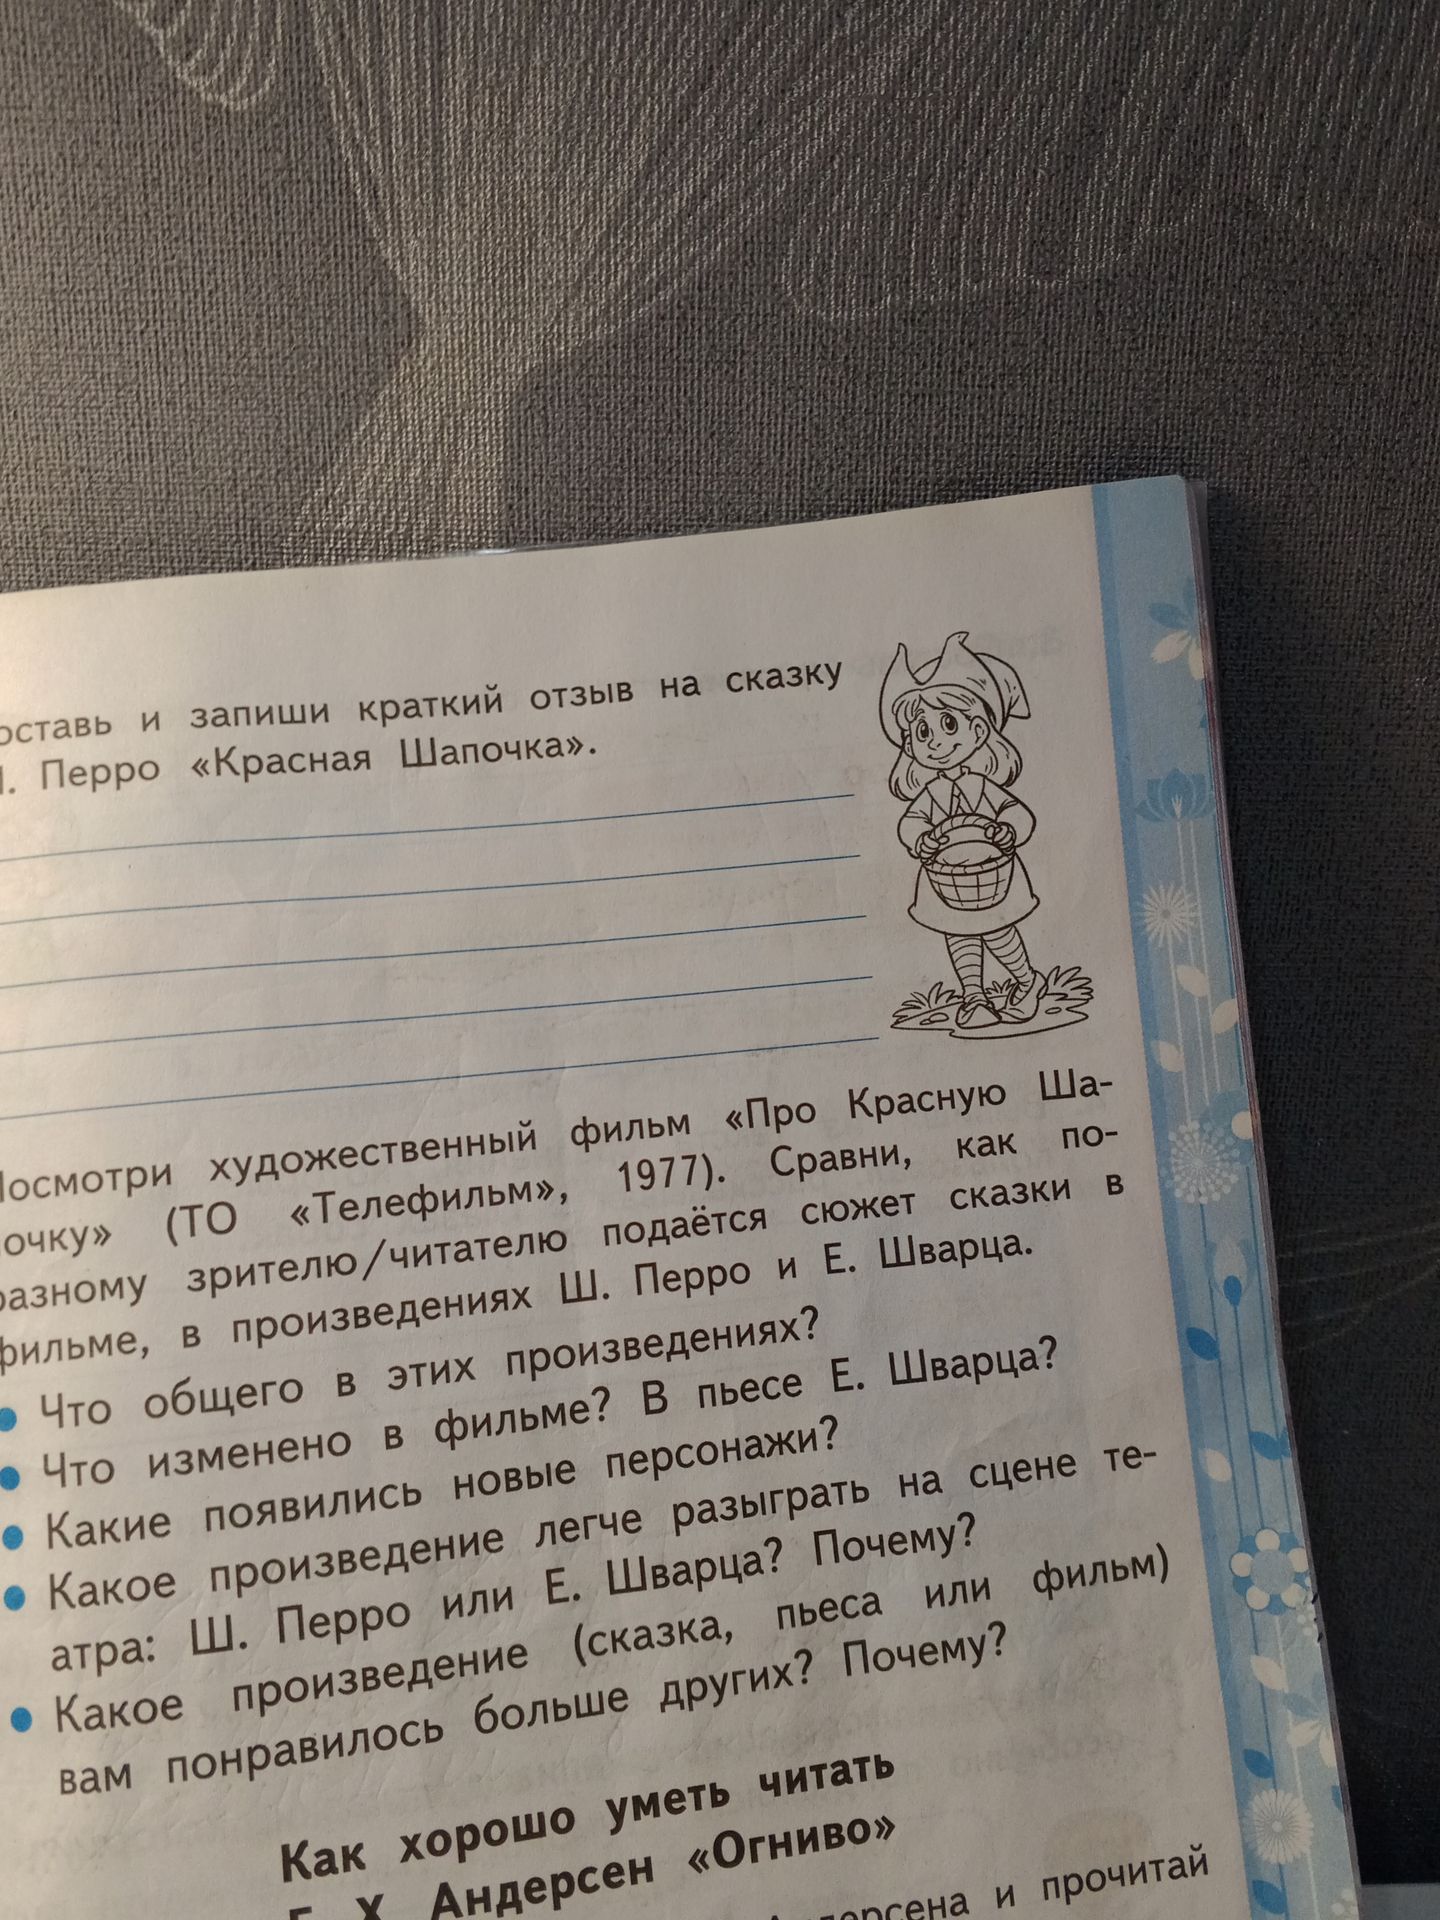 оставь и запиши краткий отзыв на сказку
. Перро «Красная Шапочка».
Посмотри художественный фильм «Про Красную Ша-
почку» (ТО «Телефильм», 1977). Сравни, как по-
разному зрителю/читателю подаётся сюжет сказки в
фильме, в произведениях Ш. Перро и Е. Шварца.
• Что общего в этих произведениях?
• Что изменено в фильме? В пьесе Е. Шварца?
• Какие появились новые персонажи?
• Какое произведение легче разыграть на сцене те-
атра: Ш. Перро или Е. Шварца? Почему?
• Какое произведение (сказка, пьеса или фильм)
вам понравилось больше других? Почему?
Как хорошо уметь читать
Г. Х. Андерсен «Огниво»
Андерсена и прочитай